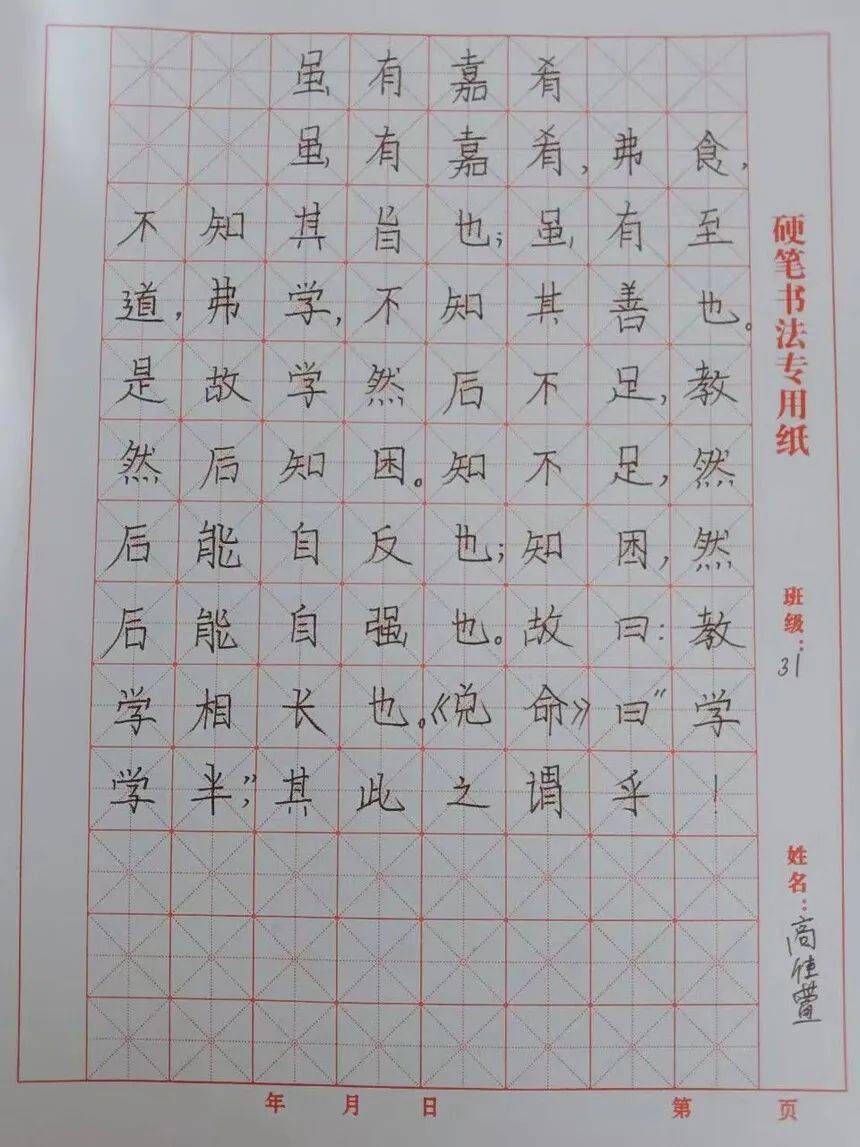 虽有嘉肴
虽有嘉肴，弗食，
不知其旨也；虽有至
道，弗学，不知其善也。
是故学然后不足，教
然后知困。知不足，然
后能自反也；知困，然
后能自强也。故曰：教
学相长也。《说命》曰“学
学半”，其此之谓乎！
硬笔书法专用纸
班级：31
姓名：高佳萱
年 月 日 第 页